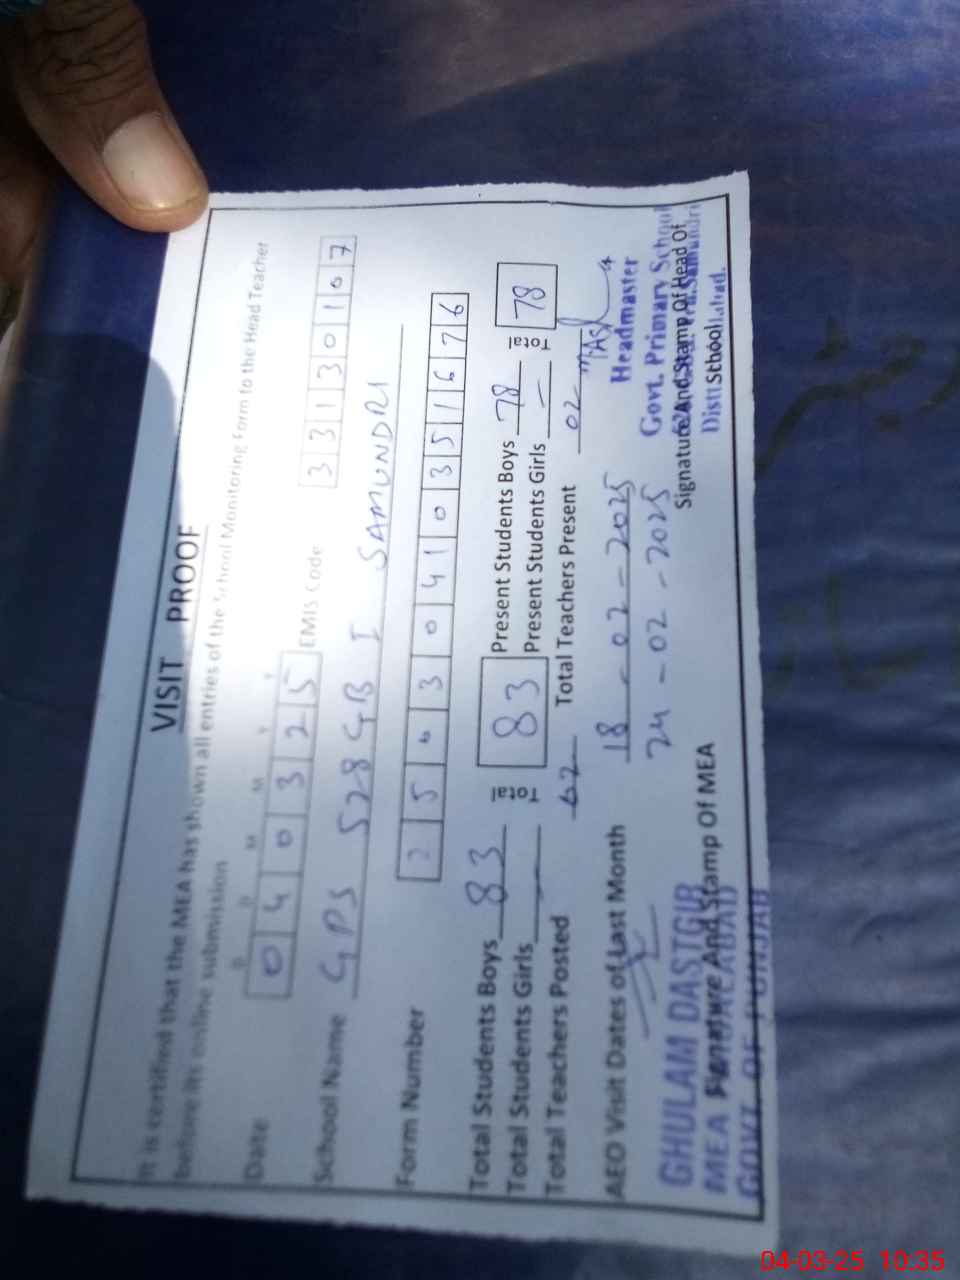 VISIT PROOF
It is certified that the MEA has shown all entries of the School Monitoring Form to the Head Teacher
before its online submission
D D M M Y Y
Date 0 4 0 3 2 5 EMIS Code 3 3 1 3 0 1 0 7
School Name GPS 528 GB I SAMUNDRI
Form Number 2 5 0 3 0 4 1 0 3 5 1 6 7 6
Total Students Boys 83 Total 83 Present Students Boys 78 Total 78
Total Students Girls — Present Students Girls —
Total Teachers Posted 02 Total Teachers Present 02
AEO Visit Dates of Last Month 18 - 02 - 2025
24 - 02 - 2025
Headmaster
Govt. Primary School
Samundri
Distt
Signature And Stamp Of Head Of
School
GHULAM DASTGIR
MEA FAISALABAD
GOVT. OF PUNJAB
Signature And Stamp Of MEA
04-03-25 10:35